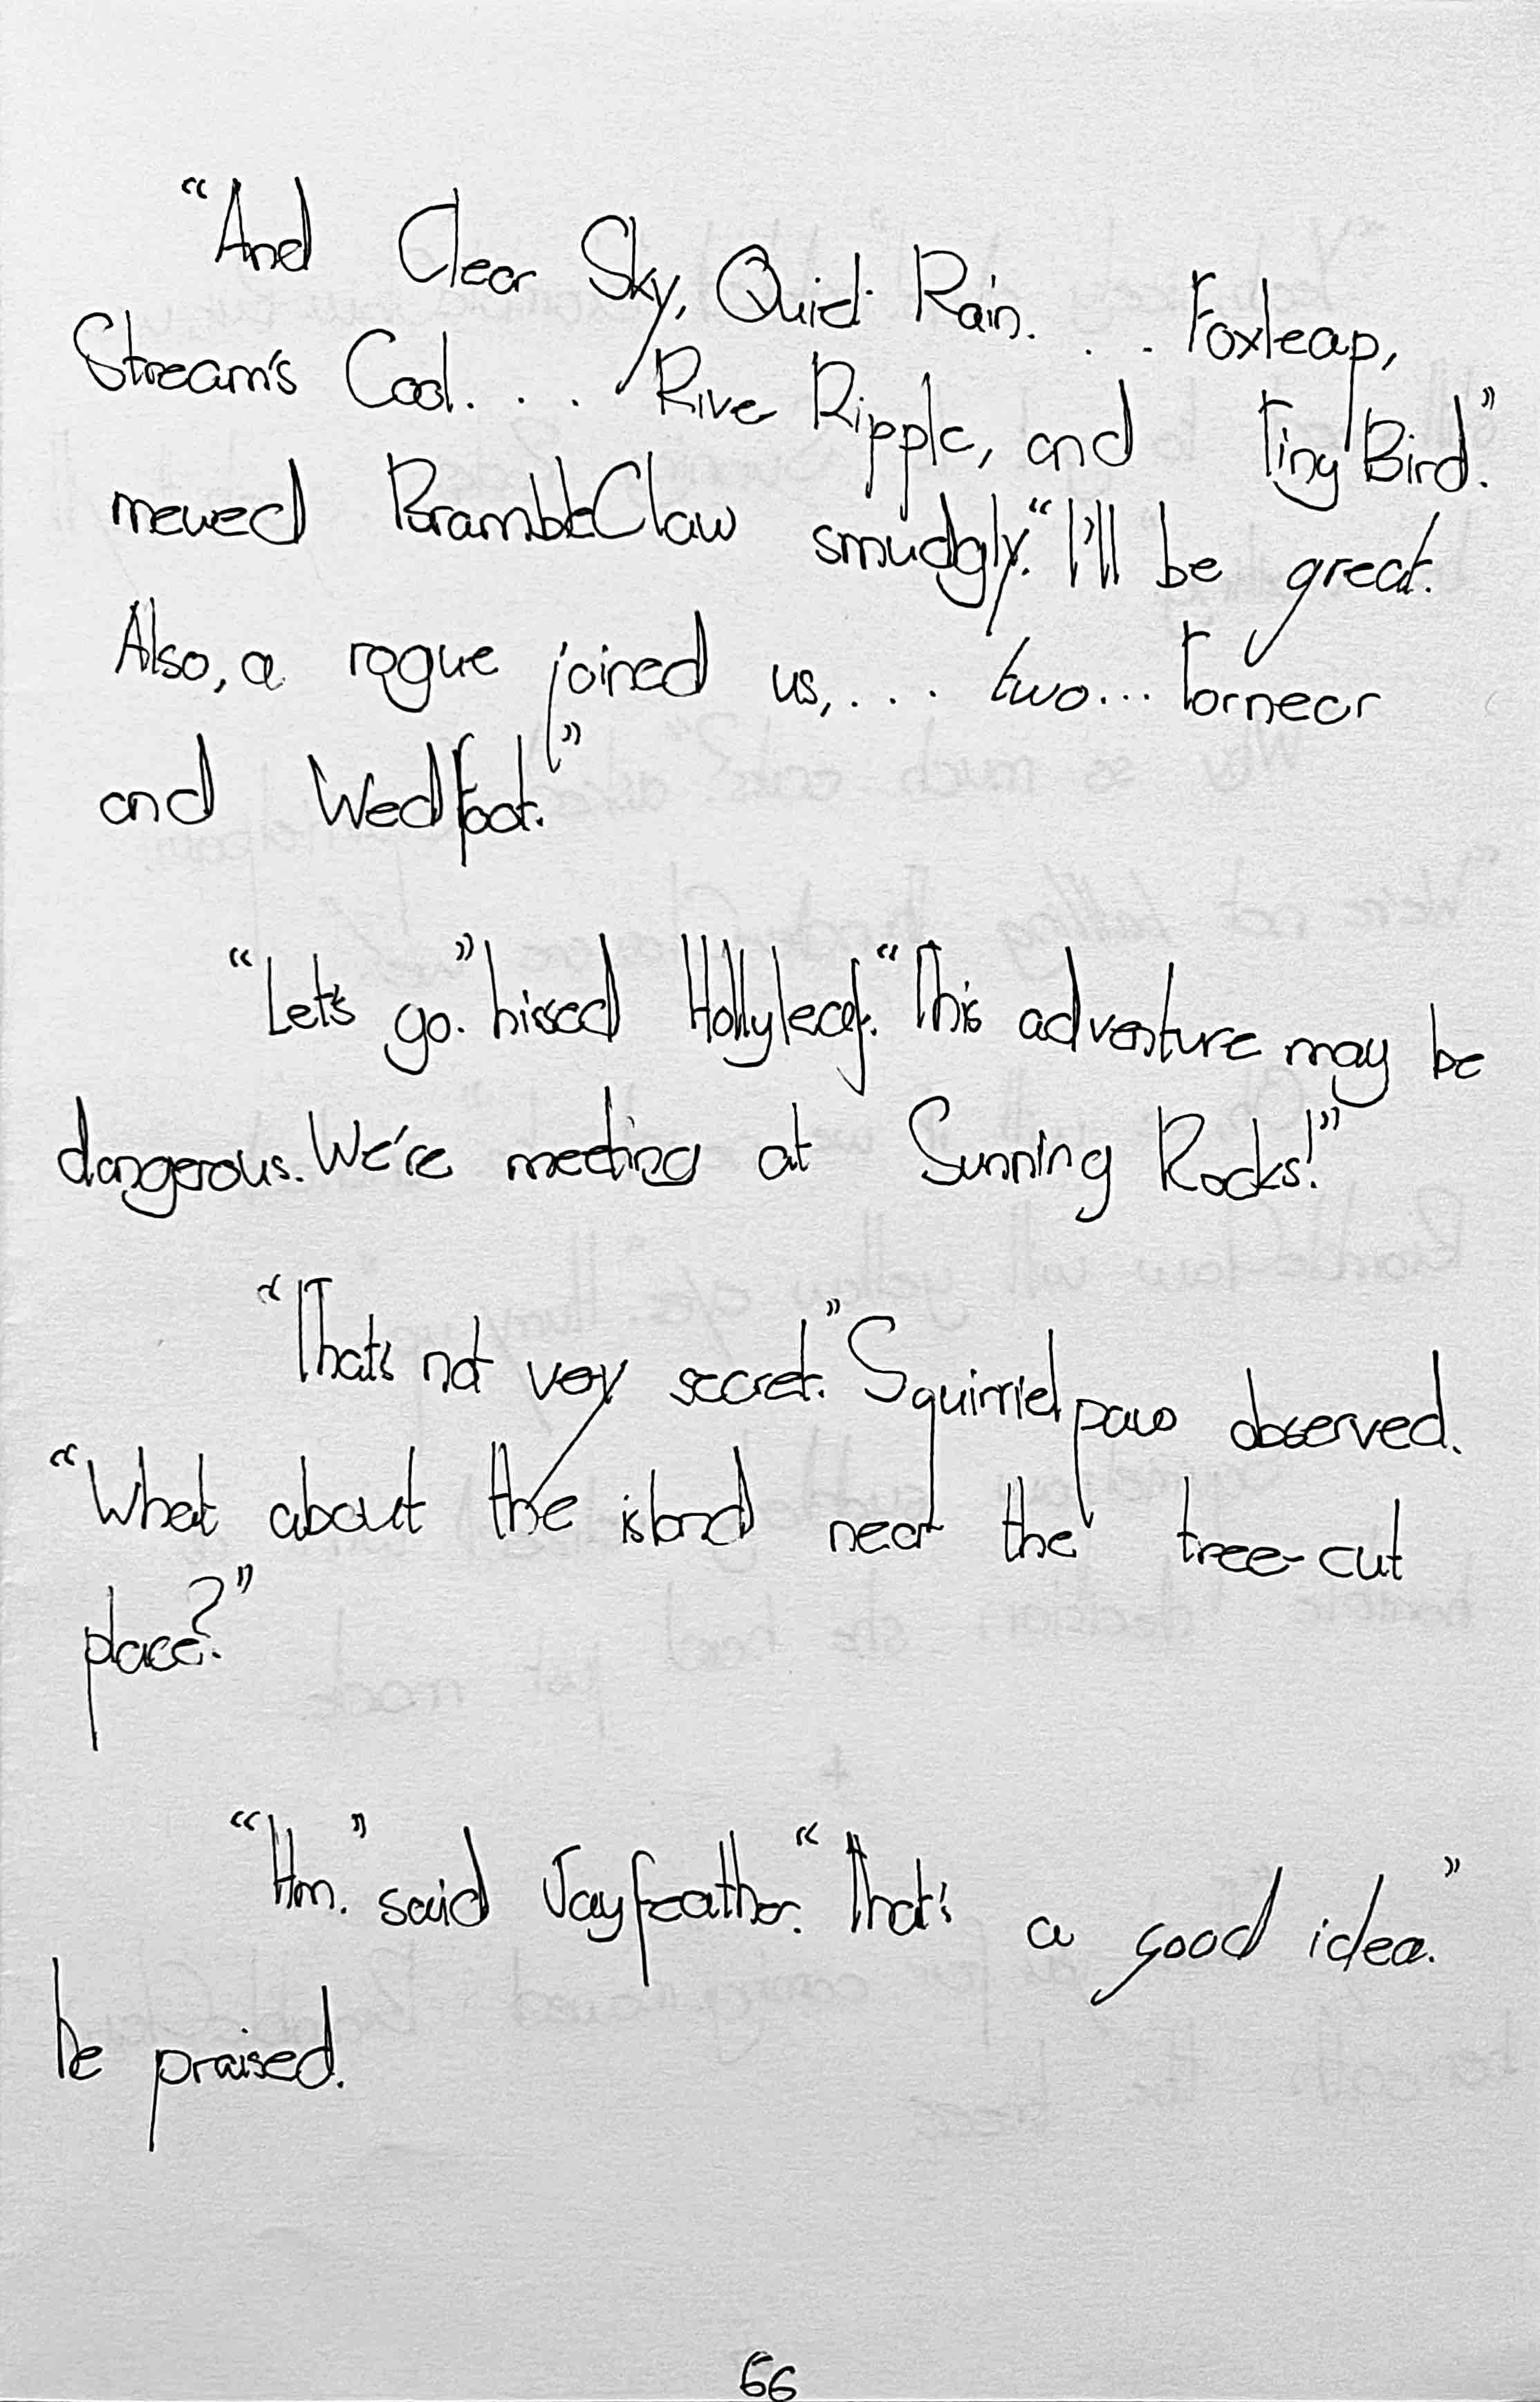 “And Clear Sky, Quiet Rain. . . Foxleap,
Stream's Cool. . . River Ripple, and Tiny Bird.”
mewed BrambleClaw smudgly. “I'll be great.
Also, a rogue joined us,. . . two... Tornear
and Wedfoot.”
“Let's go.” hissed Hollyleaf. “This adventure may be
dangerous. We're meeting at Sunning Rocks!”
“That's not very secret.” Squirrielpaw observed.
“What about the island near the tree-cut
place?”
“Hm.” said Jayfeather. “That's a good idea.”
he praised.
66